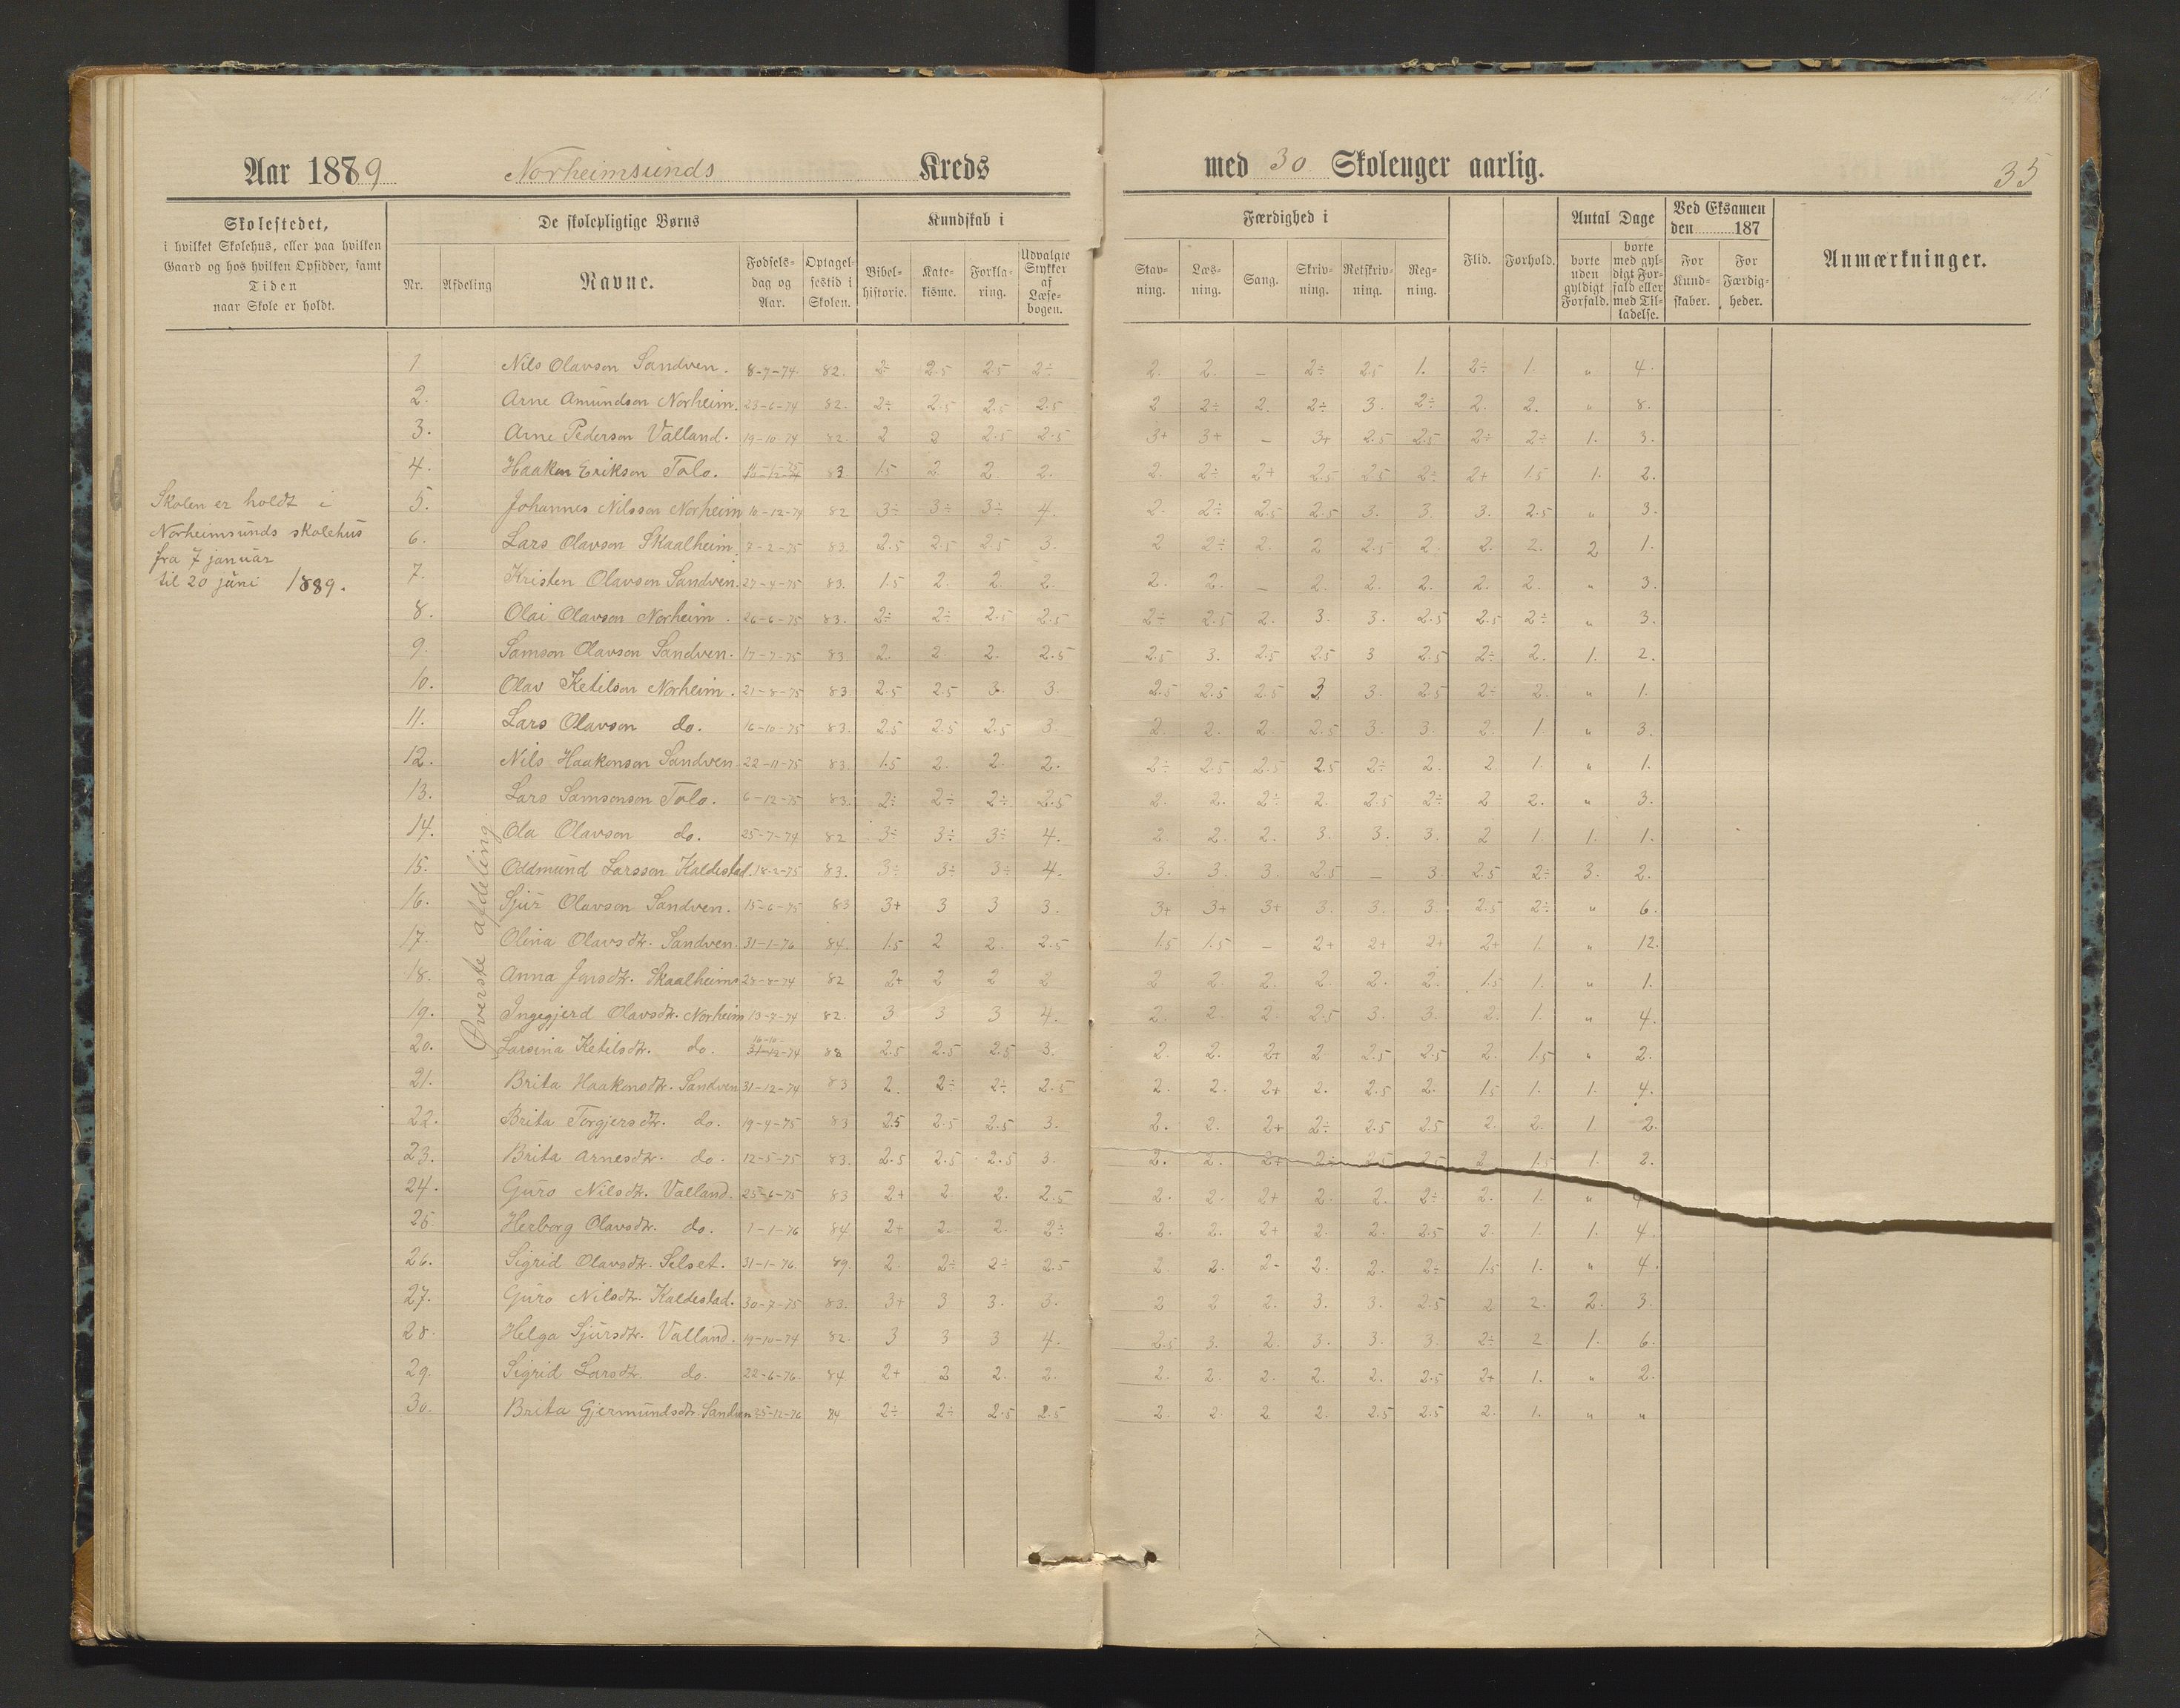 Aar 1879 Norheimsunds Kreds med 30 Skoleuger aarlig. 35
Skolestedet,
i hvilket Skolehus, eller paa hvilken
Gaard og hos hvilken Opsidder, samt
Tiden
naar Skole er holdt.
De skolepligtige Børns
Nr. Afdeling Navne. Fødselsdag og Aar. Optagelsestid i Skolen.
Kundskab i
Bibelhistorie. Katekisme. Forklaring. Udvalgte Stykker af Læsebogen.
Færdighed i
Stavning. Læsning. Sang. Skrivning. Retskrivning. Regning.
Flid. Forhold.
Antal Dage
borte uden gyldigt Forfald. borte med gyldigt Forfald eller med Tilladelse.
Ved Eksamen den 187
For Kundskaber. For Færdigheder.
Anmærkninger.
Skolen er holdt i
Norheimsunds skolehus
fra 7 januar
til 20 juni 1889.
Øverste afdeling.
1. Nils Olavson Sandven. 8-7-74 82. 2÷ 2.5 2.5 2÷ 2. 2. – 2÷ 2.5 1. 2÷ 1. " 4.
2. Arne Amundson Norheim. 23-6-74 82. 2÷ 2.5 2.5 2.5 2 2÷ 2. 2÷ 3. 2÷ 2. 2. " 8.
3. Arne Pederson Valland. 19-10-74 82. 2 2 2.5 2.5 3+ 3+ – 3+ 2.5 2.5 2÷ 2÷ 1. 3.
4. Haakon Erikson Tolo. 16-12-74 83 1.5 2. 2. 2. 2. 2÷ 2+ 2.5 2.5 2÷ 2+ 1.5 1. 2.
5. Johannes Nilsson Norheim 10-12-74 82 3÷ 3÷ 3÷ 4. 2. 2÷ 2.5 2.5 3. 3. 3. 2.5 " 3.
6. Lars Olavson Skaalheim. 7-2-75 83. 2.5 2.5 2.5 3. 2 2÷ 2. 2 2.5 2. 2. 2. 2 1.
7. Kristen Olavson Sandven. 27-4-75 83. 1.5 2. 2. 2. 2. 2. – 2. 2. 2. 2. 2. " 3.
8. Olai Olavson Norheim. 26-6-75 83. 2÷ 2÷ 2.5 2.5 2÷ 2.5 2. 3. 3. 2.5 2.5 2÷ " 3.
9. Samson Olavson Sandven. 17-7-75 83. 2. 2. 2. 2.5 2.5 3. 2.5 2.5 3 2.5 2÷ 2. 1. 2.
10. Olav Ketilson Norheim. 21-8-75 83. 2.5 2.5 3. 3. 2.5 2.5 2.5 3 3. 2.5 2÷ 2. " 1.
11. Lars Olavson do. 16-10-75 83. 2.5 2.5 2.5 3. 2. 2. 2. 2.5 3. 3. 2. 1. " 3.
12. Nils Haakonson Sandven 22-11-75 83. 1.5 2. 2. 2. 2÷ 2.5 2.5 2.5 2÷ 2. 2. 1. " 1.
13. Lars Samsonson Tolo. 6-12-75 83. 2÷ 2÷ 2÷ 2.5 2. 2. 2÷ 2. 2.5 2÷ 2 2. " 3.
14. Ola Olavson do. 25-7-74 82 3÷ 3÷ 3÷ 4. 2. 2. 2. 3. 3. 3. 2 1. 1. 1.
15. Oddmund Larsson Kaldestad. 18-2-75 83. 3÷ 3÷ 3÷ 4. 3. 3. 3. 2.5 – 3 2.5 2÷ 3. 2.
16. Sjur Olavson Sandven. 15-6-75 83 3+ 3 3 3. 3+ 3+ 3+ 3. 3. 3. 2.5 2÷ " 6.
17. Olina Olavsdtr. Sandven. 31-1-76 84. 1.5 2 2. 2.5 1.5 1.5 – 2+ 2+ 2+ 2+ 1. " 12.
18. Anna Jonsdtr. Skaalheims 28-8-74 82 2+ 2 2 2 2 2. 2. 2. 2. 2. 1.5 1. " 1.
19. Ingegjerd Olavsdtr. Norheim 13-7-74 82. 3. 3 3 4. 2. 2. 2. 2.5 3. 3. 2. 1. " 4.
20. Larsina Ketilsdtr. do. 31-12-74 83 2.5 2.5 2.5 3. 2. 2. 2+ 2 2.5 2.5 2. 1.5 " 2.
21. Brita Haakonsdtr. Sandven 31-12-74 83 2. 2÷ 2÷ 2.5 2. 2. 2+ 2. 2.5 2. 1.5 1. 1. 4.
22. Brita Torgjersdtr. do. 19-4-75 83 2.5 2.5 2.5 3. 2. 2. 2+ 2÷ 2.5 2.5 2. 2. 1 2.
23. Brita Arnesdtr. do. 12-5-75 83. 2.5 2.5 2.5 3. 2. 2. 2+ 2÷ 2.5 2.5 2. 1.5 1. 2.
24. Guro Nilsdtr. Valland. 25-6-75 83 2+ 2. 2. 2.5 2. 2. 2+ 2. 2. 2÷ 2. 1. "
25. Herborg Olavsdtr. do. 7-1-76 84 2+ 2. 2. 2÷ 2. 2. 2+ 2. 2. 2.5 2. 1. 1. 4.
26. Sigrid Olavsdtr. Selset. 31-1-76. 89. 2. 2÷ 2÷ 2.5 2. 2. 2- 2. 2. 2÷ 1.5 1. " 4.
27. Guro Nilsdtr. Kaldestad. 30-7-75 83. 3+ 3 3. 3. 2 2 2. 3. 3. 2.5 2 2. 2. 3.
28. Helga Sjursdtr. Valland. 19-10-74 82. 3 3 3 4. 2.5 3. 2. 3. 3. 3. 2÷ 2 1. 6.
29. Sigrid Larsdtr. do. 22-6-76. 84 2+ 2 2. 2. 2. 2. 2. 2. 2. 2.5 2+ 1. " 2.
30. Brita Gjermundsdtr. Sandven 25-12-76 84 2÷ 2÷ 2.5 2.5 2. 2. 2 2. 2.5 2.5 2. 1. " "